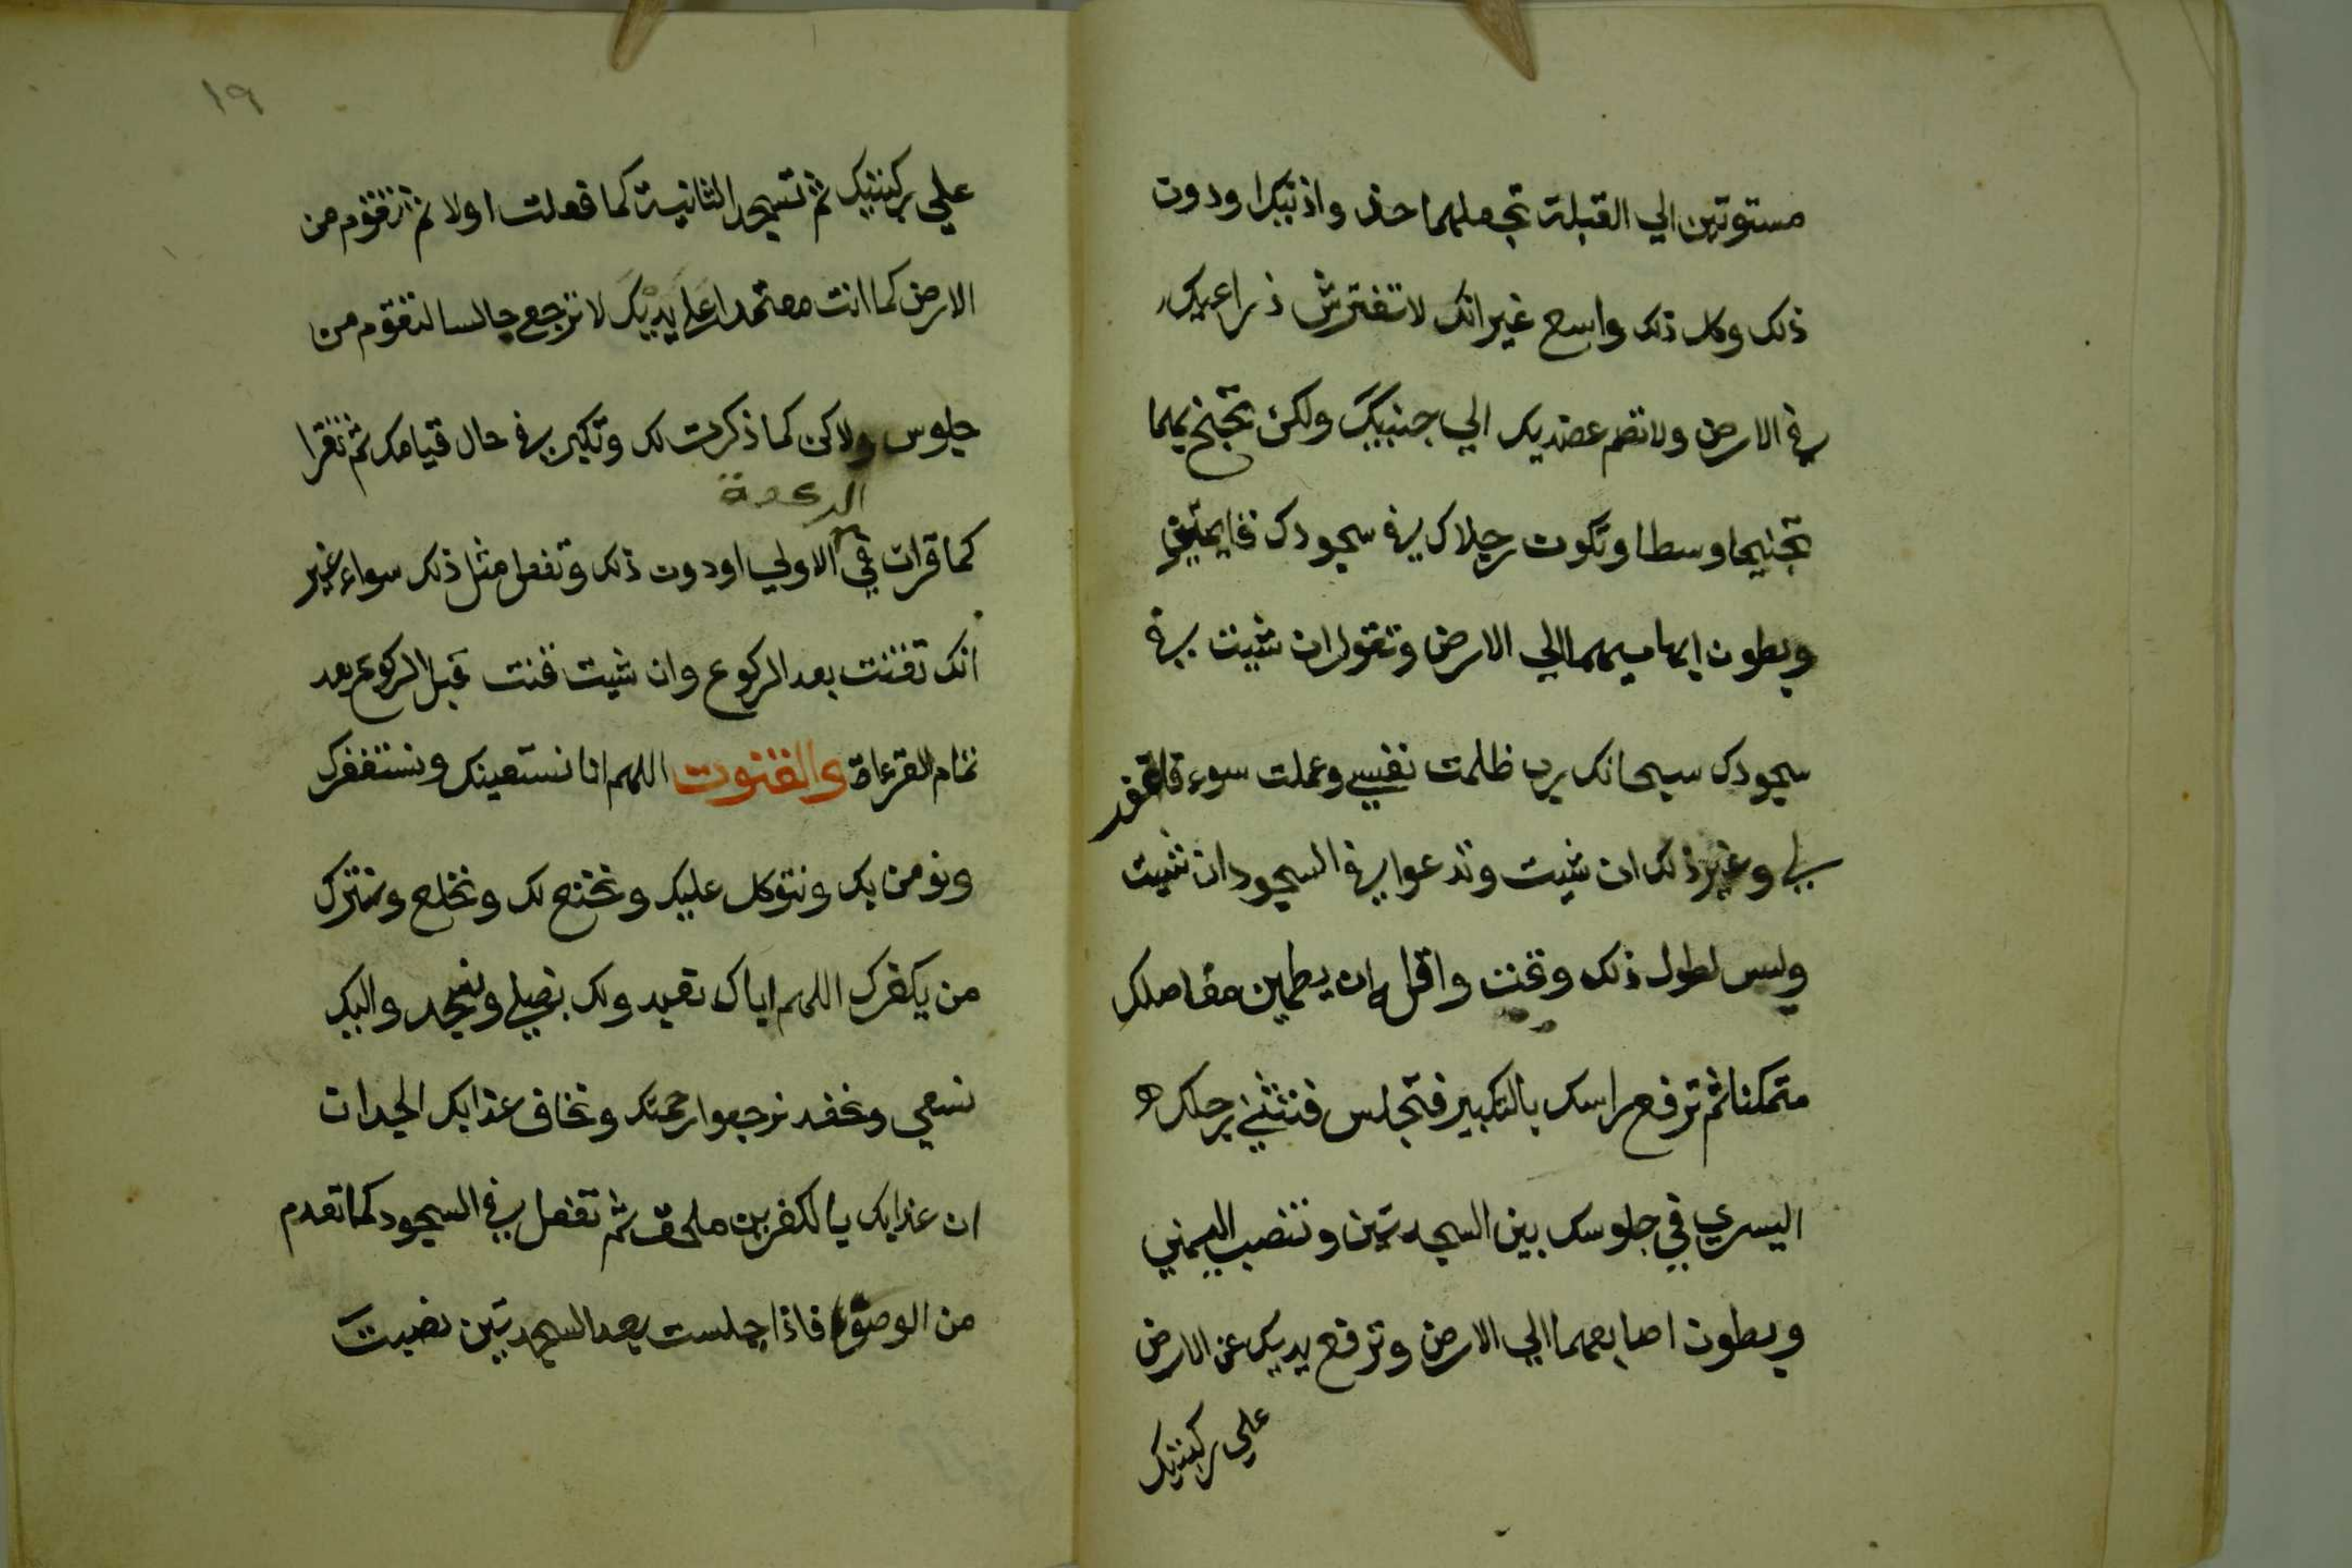 مستوتين الي القبلة تجعلهما حذو اذنيك او دون
ذلك وكل ذلك واسع غير انك لا تفترش ذراعيك
في الارض ولا تضم عضديك الي جنبيك ولكن تجنح بهما
تجنيحا وسطا وتكون رجلاك في سجودك قايمتين
وبطون ابهاميهما الي الارض وتقول ان شيت في
سجودك سبحانك رب ظلمت نفسي وعملت سوء فاغفر
لي وغير ذلك ان شيت وتدعوا في السجود ان شيت
وليس لطول ذلك وقت واقله ان يطمين مفاصلك
متمكنا ثم ترفع راسك بالتكبير فتجلس فتثني رجلك
اليسري في جلوسك بين السجدتين وتنصب اليمني
وبطون اصابعهما الي الارض وترفع يديك عن الارض
علي ركبتيك
١٩
علي ركبتيك ثم تسجد الثانية كما فعلت اولا ثم تقوم من
الارض كما انت معتمدا علي يديك لا ترجع جالسا لتقوم من
جلوس ولاكن كما ذكرت لك وتكبر في حال قيامك ثم تقرا
الركعة
كما قرات في الاولي او دون ذلك وتفعل مثل ذلك سواء غير
انك تقنت بعد الركوع وان شيت قنت قبل الركوع بعد
تمام القرءاة والقنوت اللهم انا نستعينك ونستغفرك
ونومن بك ونتوكل عليك ونخنع لك ونخلع ونترك
من يكفرك اللهم اياك نعبد ولك نصلي ونسجد واليك
نسعي ونحفد نرجوا رحمتك ونخاف عذابك الجد ان
ان عذابك بالكفرين ملحق ثم تفعل في السجود كما تقدم
من الوصف فاذا جلست بعد السجدتين نصبت